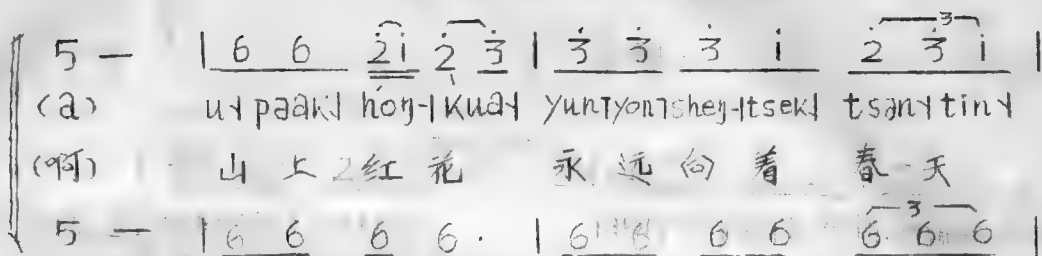 5 — | 6 6 2̇1̇ 2̇ 3̇ | 3̇ 3̇ 3̇ 1̇ 2̇ 3̇ 1̇ |
(a) u˧ paak˧ hoŋ˧ kua˧ yun˥yon˥sheŋ˧tsek˧ tsan˧tin˧
(啊) 山上红花 永远向着春天
5 — | 6 6 6 6 · | 6 6 6 6 6 6 6 |